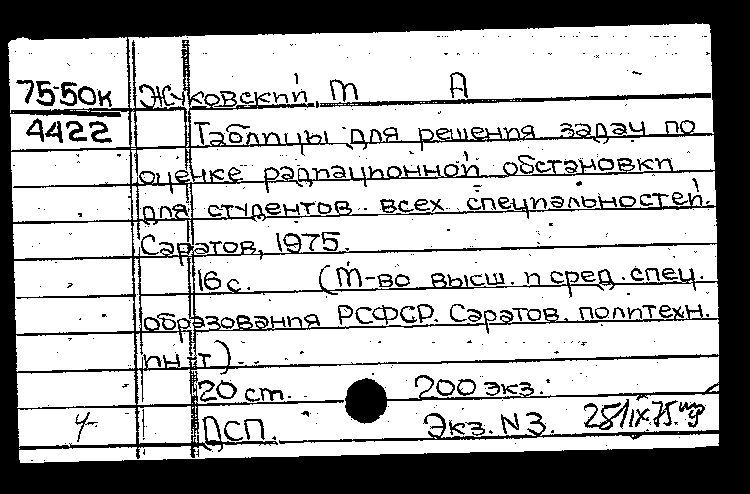 75-50к Жуковский, М А
4422 Таблицы для решения задач по
оценке радиационной обстановки
для студентов всех специальностей.
Саратов, 1975.
16 с. (М-во высш. и сред. спец.
образования РСФСР. Саратов. политехн.
ин-т).
20 ст. 200 экз.
4 ДСП. Экз. N 3. 25/IX-75.